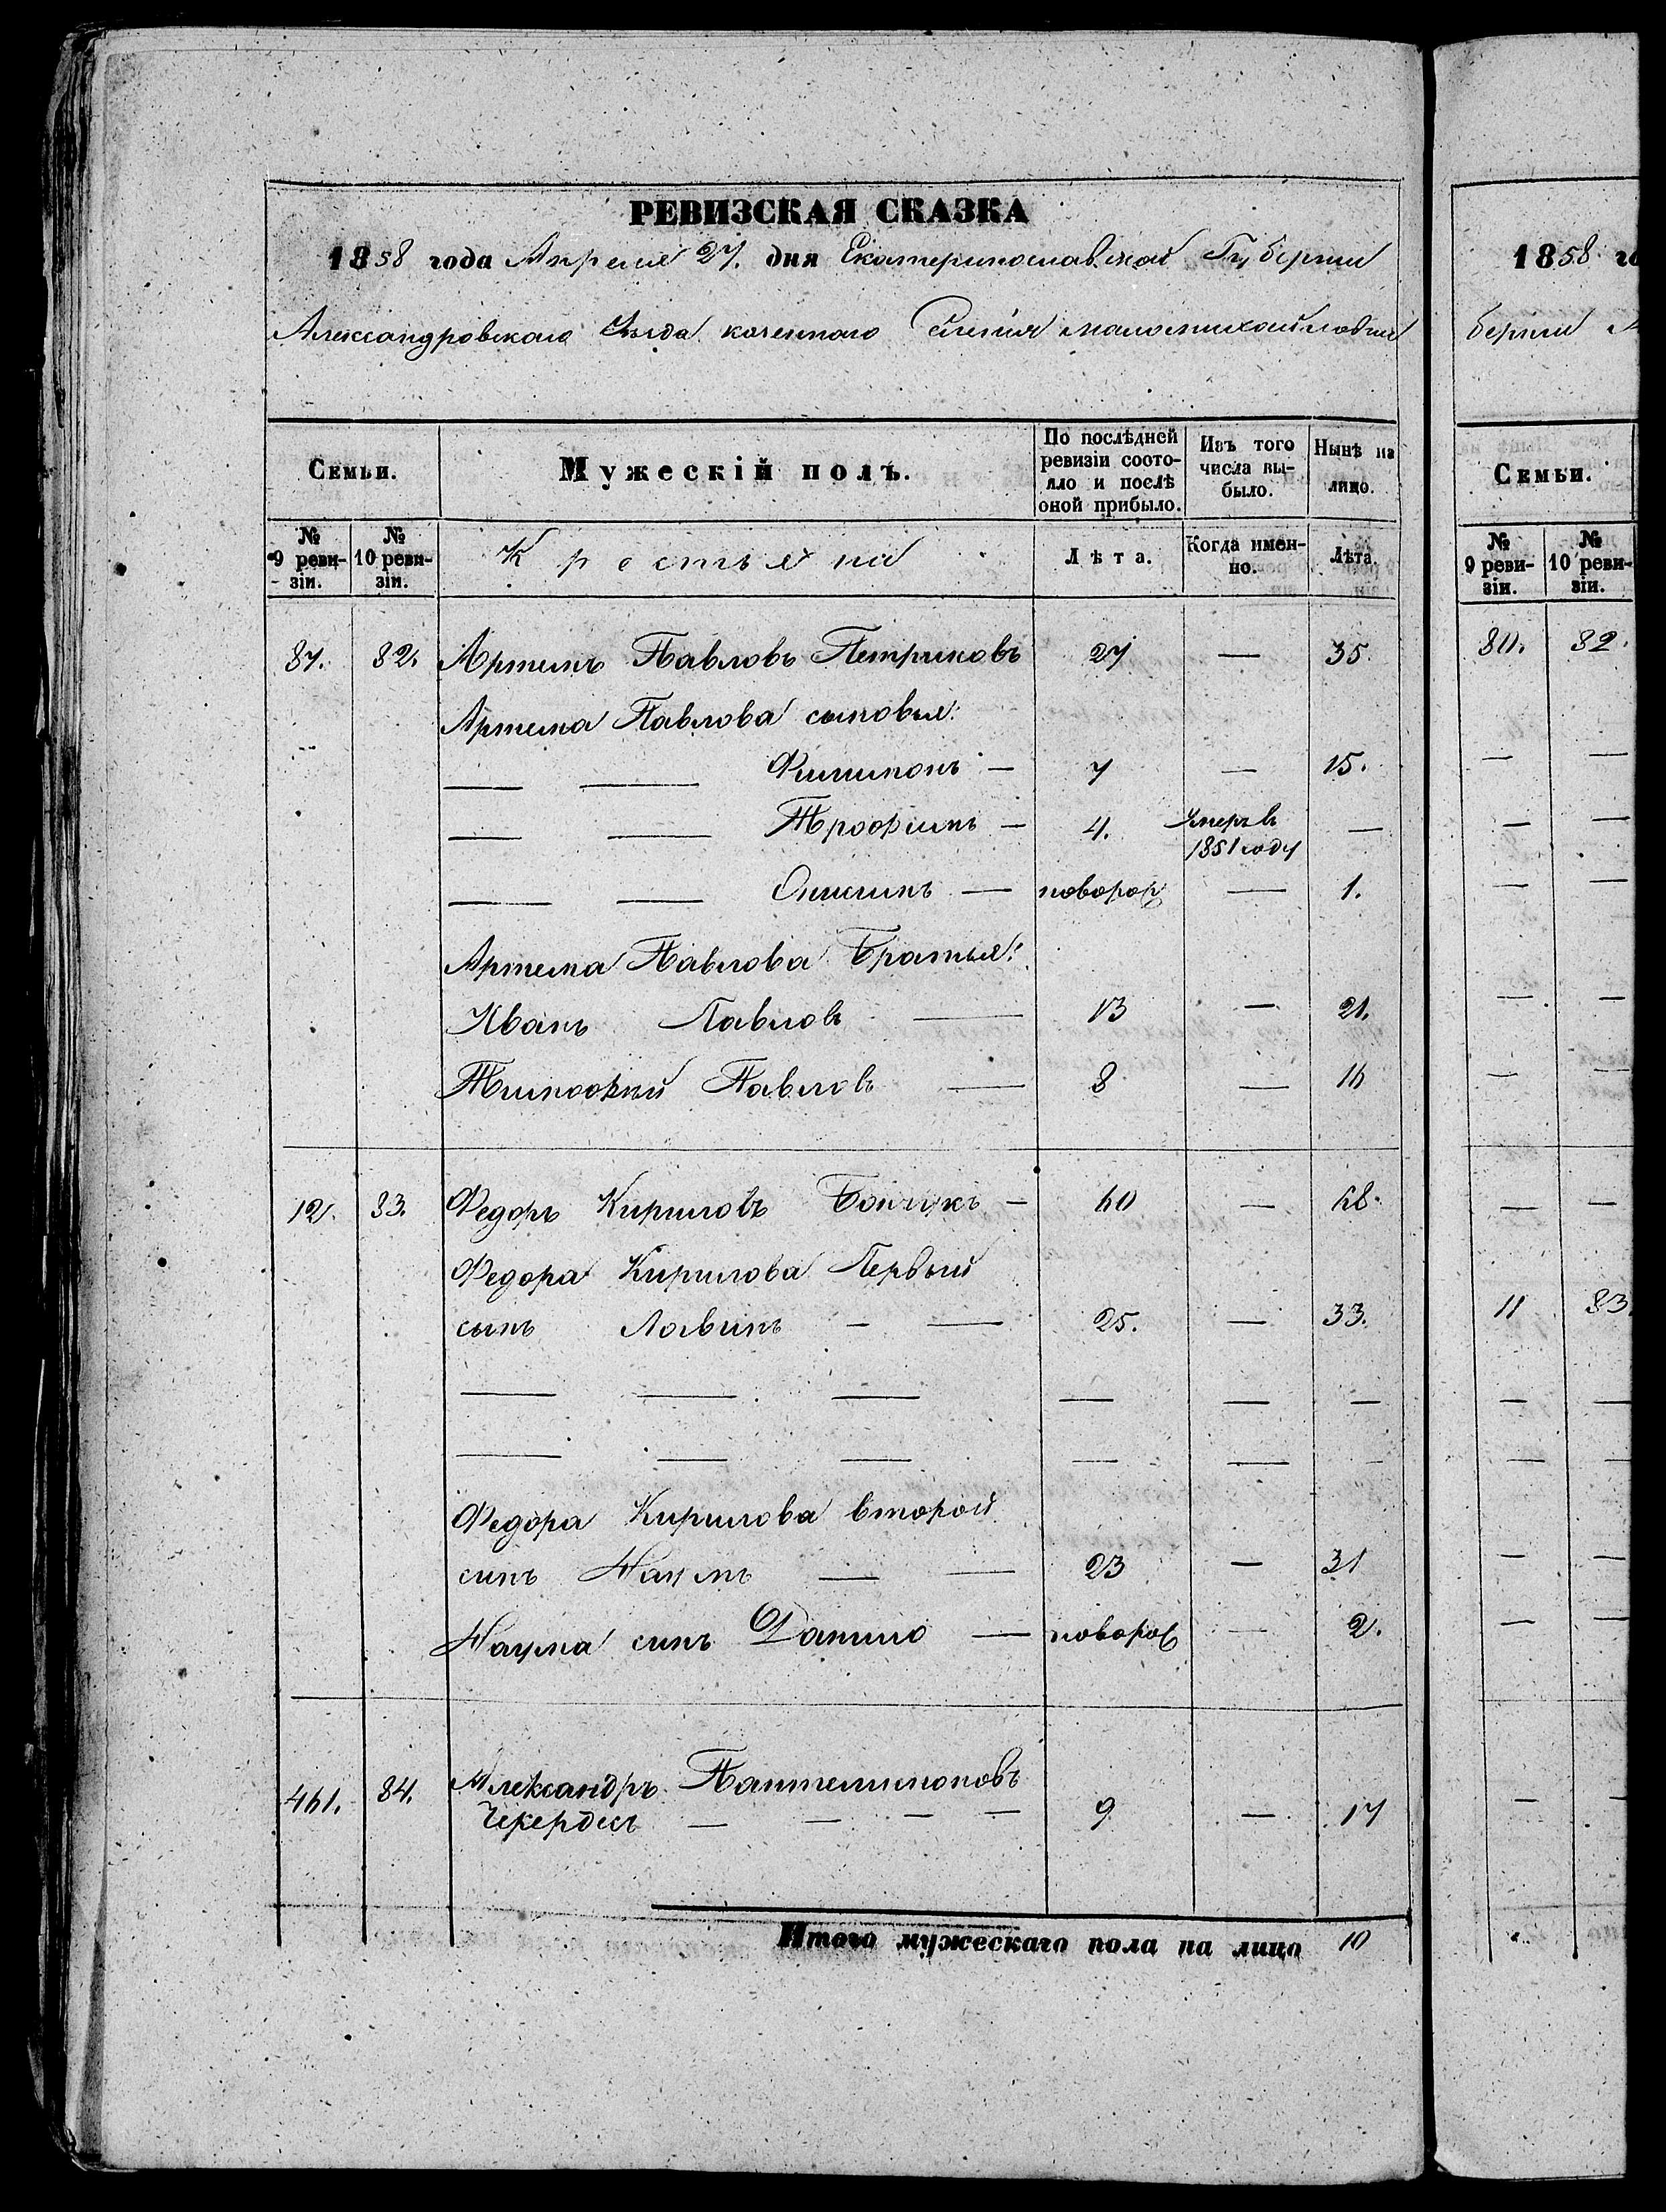 РЕВИЗСКАЯ СКАЗКА
1858 года Апреля 27. дня Екатеринославской Губернии
Александровскаго Уезда казенного Селения маломихайловки
Семьи.
Мужескій полъ.
По послѣдней ревизіи состо-
яло и послѣ оной прибыло.
Изъ того числа вы-
было.
Нынѣ на лицо.
№ 9 реви-
зіи.
№ 10 реви-
зіи.
Крестьяне
Лѣта.
Когда имен-
но.
Лѣта.
87. 82. Артемъ Павловъ Петриковъ 27 — 35.
Артема Павлова сыновья:
— — Филимонъ — 7 — 15.
— — Трофимъ — 4. Умеръ в 1851 году —
— — — новорож — 1.
Артема Павлова Братья:
Иванъ Павловъ — 13 — 21.
Тимофей Павловъ — 8 — 16
12. 83. Федоръ Кириловъ — 60 — 68.
Федора Кирилова Первый
сынъ Логвинъ — — 25. — 33.
— — — — — —
— — — — — —
Федора Кирилова второй
синъ Наумъ — — 23 — 31
Наума синъ Данило — новорож — 2.
461. 84. Александръ Пантелимоновъ
Чекердесъ — — — — 9 — 17
Итого мужескаго пола на лицо 10
1858 го
берніи
Семьи.
№ 9 реви-
зіи.
№ 10 реви-
зіи.
80. 82.
11 83.